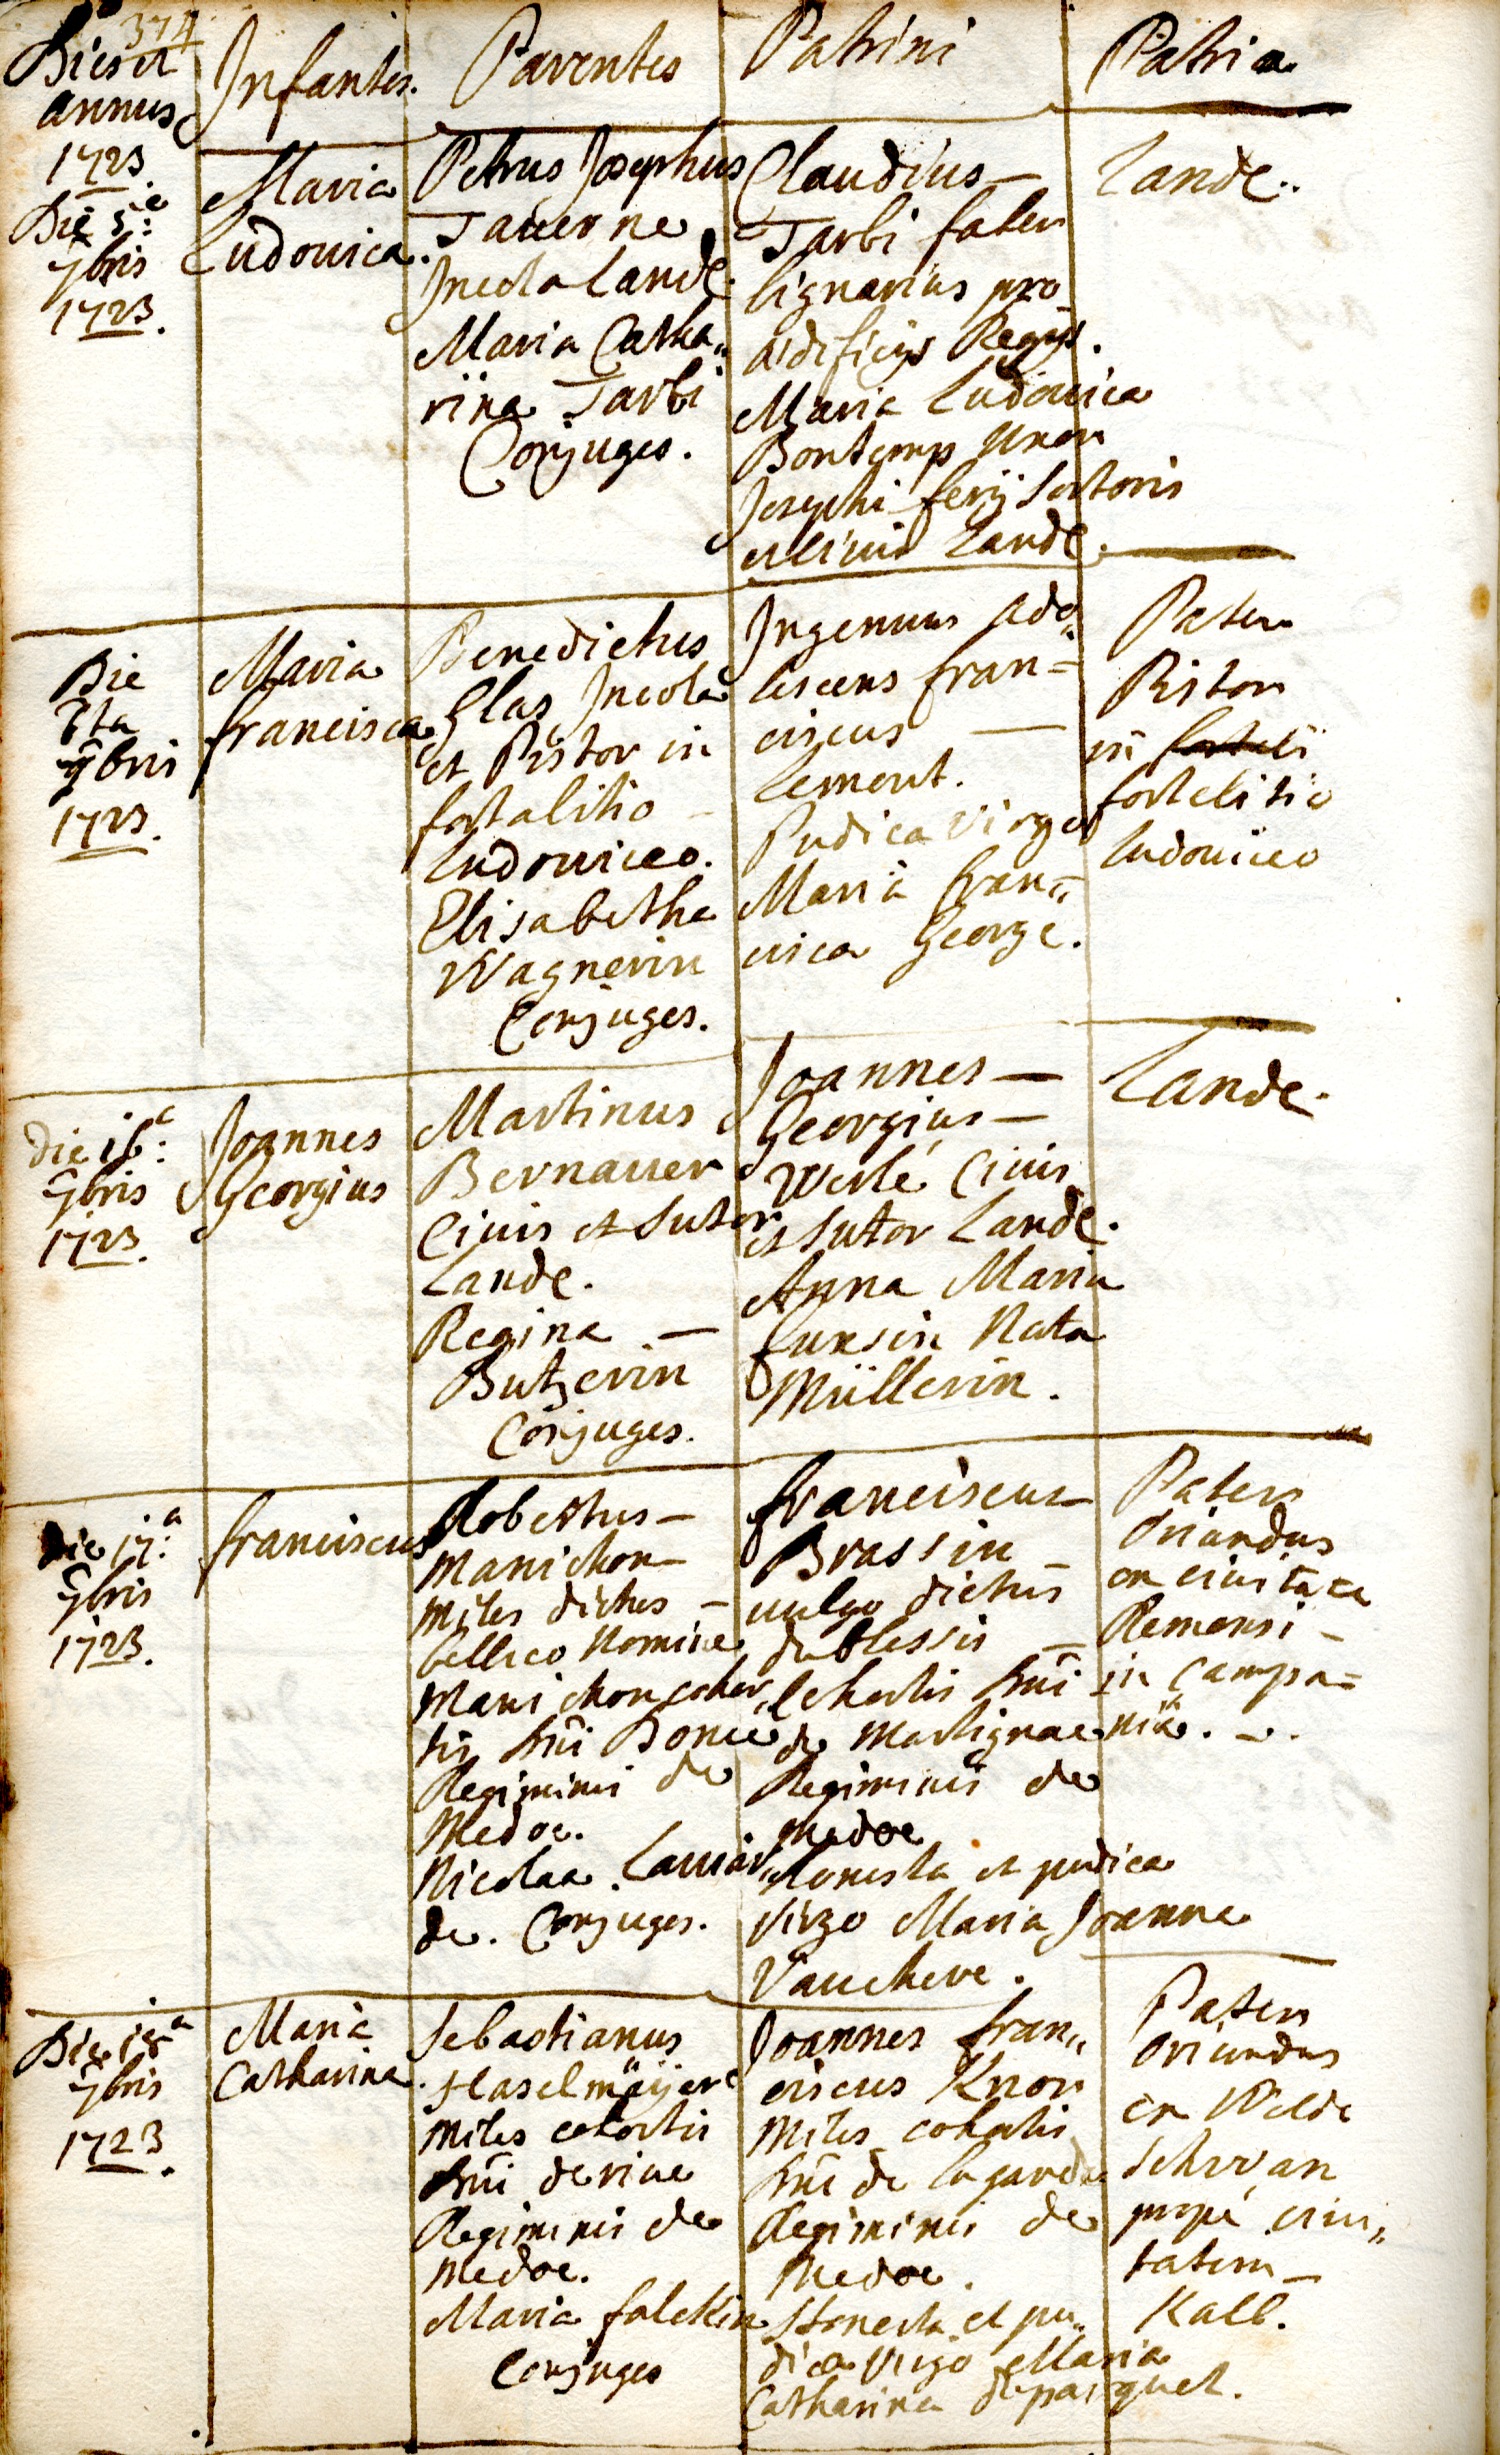 374
Dies et
annus
1723
Infantes.
Parentes
Patrini
Patria
Die 5:
9bris
1723.
Maria
Ludovica.
Petrus Josephus
Tauerne
Incola Land.
Maria Catha„
riina Tarbi
Conjuges.
Claudius —
Tarbi faber
lignarius pro
aedificijs Regijs.
Maria Ludouica
Bontemp Uxor
Josephi ferij Sartoris
et Ciuis Land.
Lande.
Die
8ta
9bris
1723.
Maria
francisca
Benedictus
Glas Incola
et Pistor in
fortalitio
Ludouiceo.
Elisabetha
Wagnerin
Conjuges.
Ingenuus ado„
lescens fran=
ciscus —
Lement.
Pudica Virgo
Maria fran=
cisca George.
Pater
Pistor
in
fortalitio
Ludouiceo
die 16ª:
9bris
1723.
Joannes
Georgius
Martinus
Bernauer
Ciuis et Sutor
Lande.
Regina —
Butzerin
Conjuges.
Joannes —
Georgius —
Werlé Ciuis
et Sutor Lande.
Anna Maria
fuxsin Nata
Müllerin.
Lande.
Die 17ª:
9bris
1723.
franciscus
Robertus —
Manichon —
Miles dictus —
bellico Nomine
Manichon cohor„
tis Dni Bonce
Regiminis de
Medoc.
Nicolaa Lauiar„
de. Conjuges.
franciscus —
Brassin —
uulgo dictus
dublessis —
Cohortis Dni
de Martignac
Regiminis de
Medoc
Honesta et pudica
Virgo Maria Joanna
Vauchere.
Pater
Oriundus
ex ciuitate
Remensi —
in Campa=
niâ.
Die 18ª
9bris
1723.
Maria
Catharina.
Sebastianus
Haselmäÿer
Miles cohortis
Dni deriue
Regiminis de
Medoc.
Maria falckin
Conjuges
Joannes fran„
ciscus Knor
Miles cohortis
Dni de lagarde
Regiminis de
Medoc.
Honesta et pu„
dica Virgo Maria
Catharina depasquet.
Pater
Oriundus
ex Wilde
Schwan
propé ciui„
tatem —
Kalb.